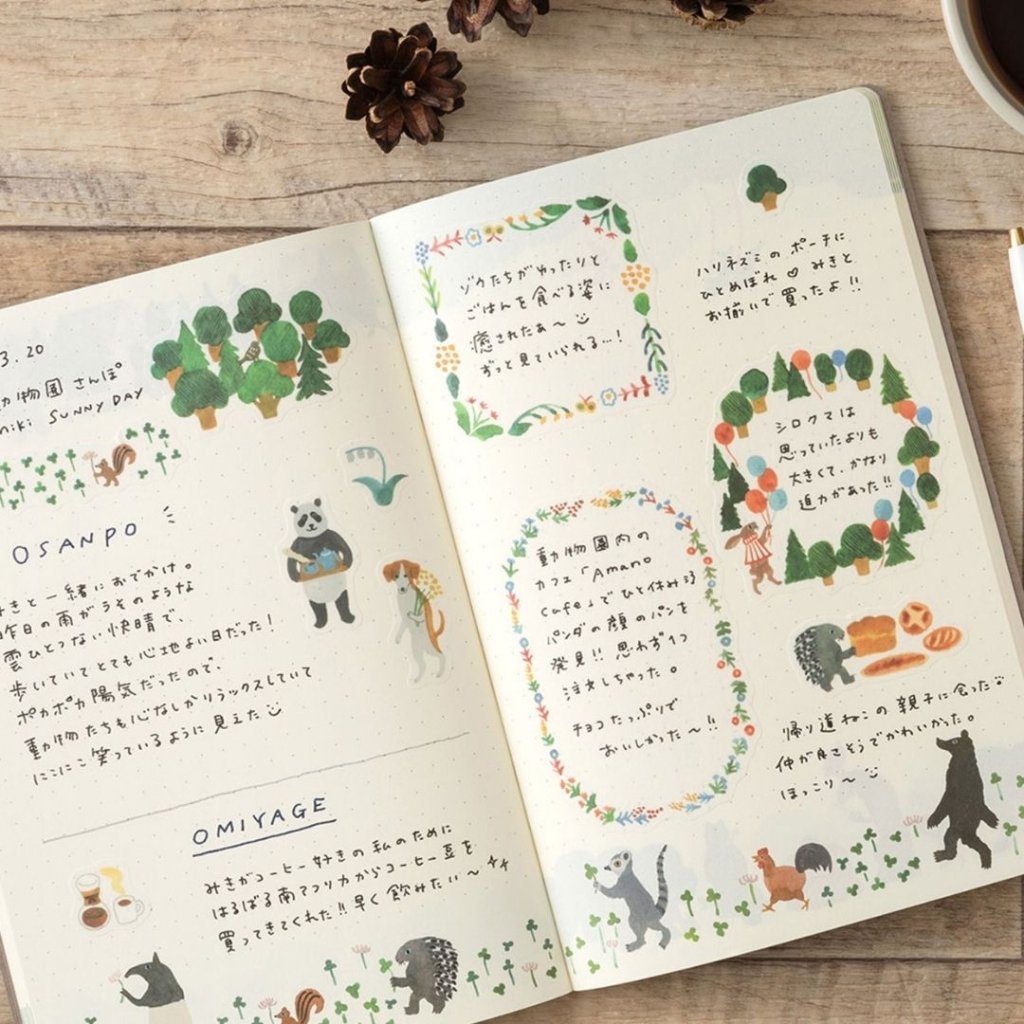 3.20
動物園 さんぽ
miki SUNNY DAY
OSANPO
みきと一緒におでかけ。
昨日の雨がうそのような
雲ひとつない快晴で、
歩いていてとても心地よい日だった！
ポカポカ陽気だったので、
動物たちも心なしかリラックスしていて
にこにこ笑っているように見えた
OMIYAGE
みきがコーヒー好きの私のために
はるばる南アフリカからコーヒー豆を
買ってきてくれた!!早く飲みたい〜
ゾウたちがゆったりと
ごはんを食べる姿に
癒されたぁ〜
ずっと見ていられる…！
ハリネズミのポーチに
ひとめぼれ♡みきと
お揃いで買ったよ!!
シロクマは
思っていたよりも
大きくて、かなり
迫力があった!!
動物園内の
カフェ「Amano
cafe」でひと休み
パンダの顔のパンを
発見!! 思わず1つ
注文しちゃった。
チョコたっぷりで
おいしかった〜!!
帰り道ねこの親子に会った
仲が良さそうでかわいかった。
ほっこり〜